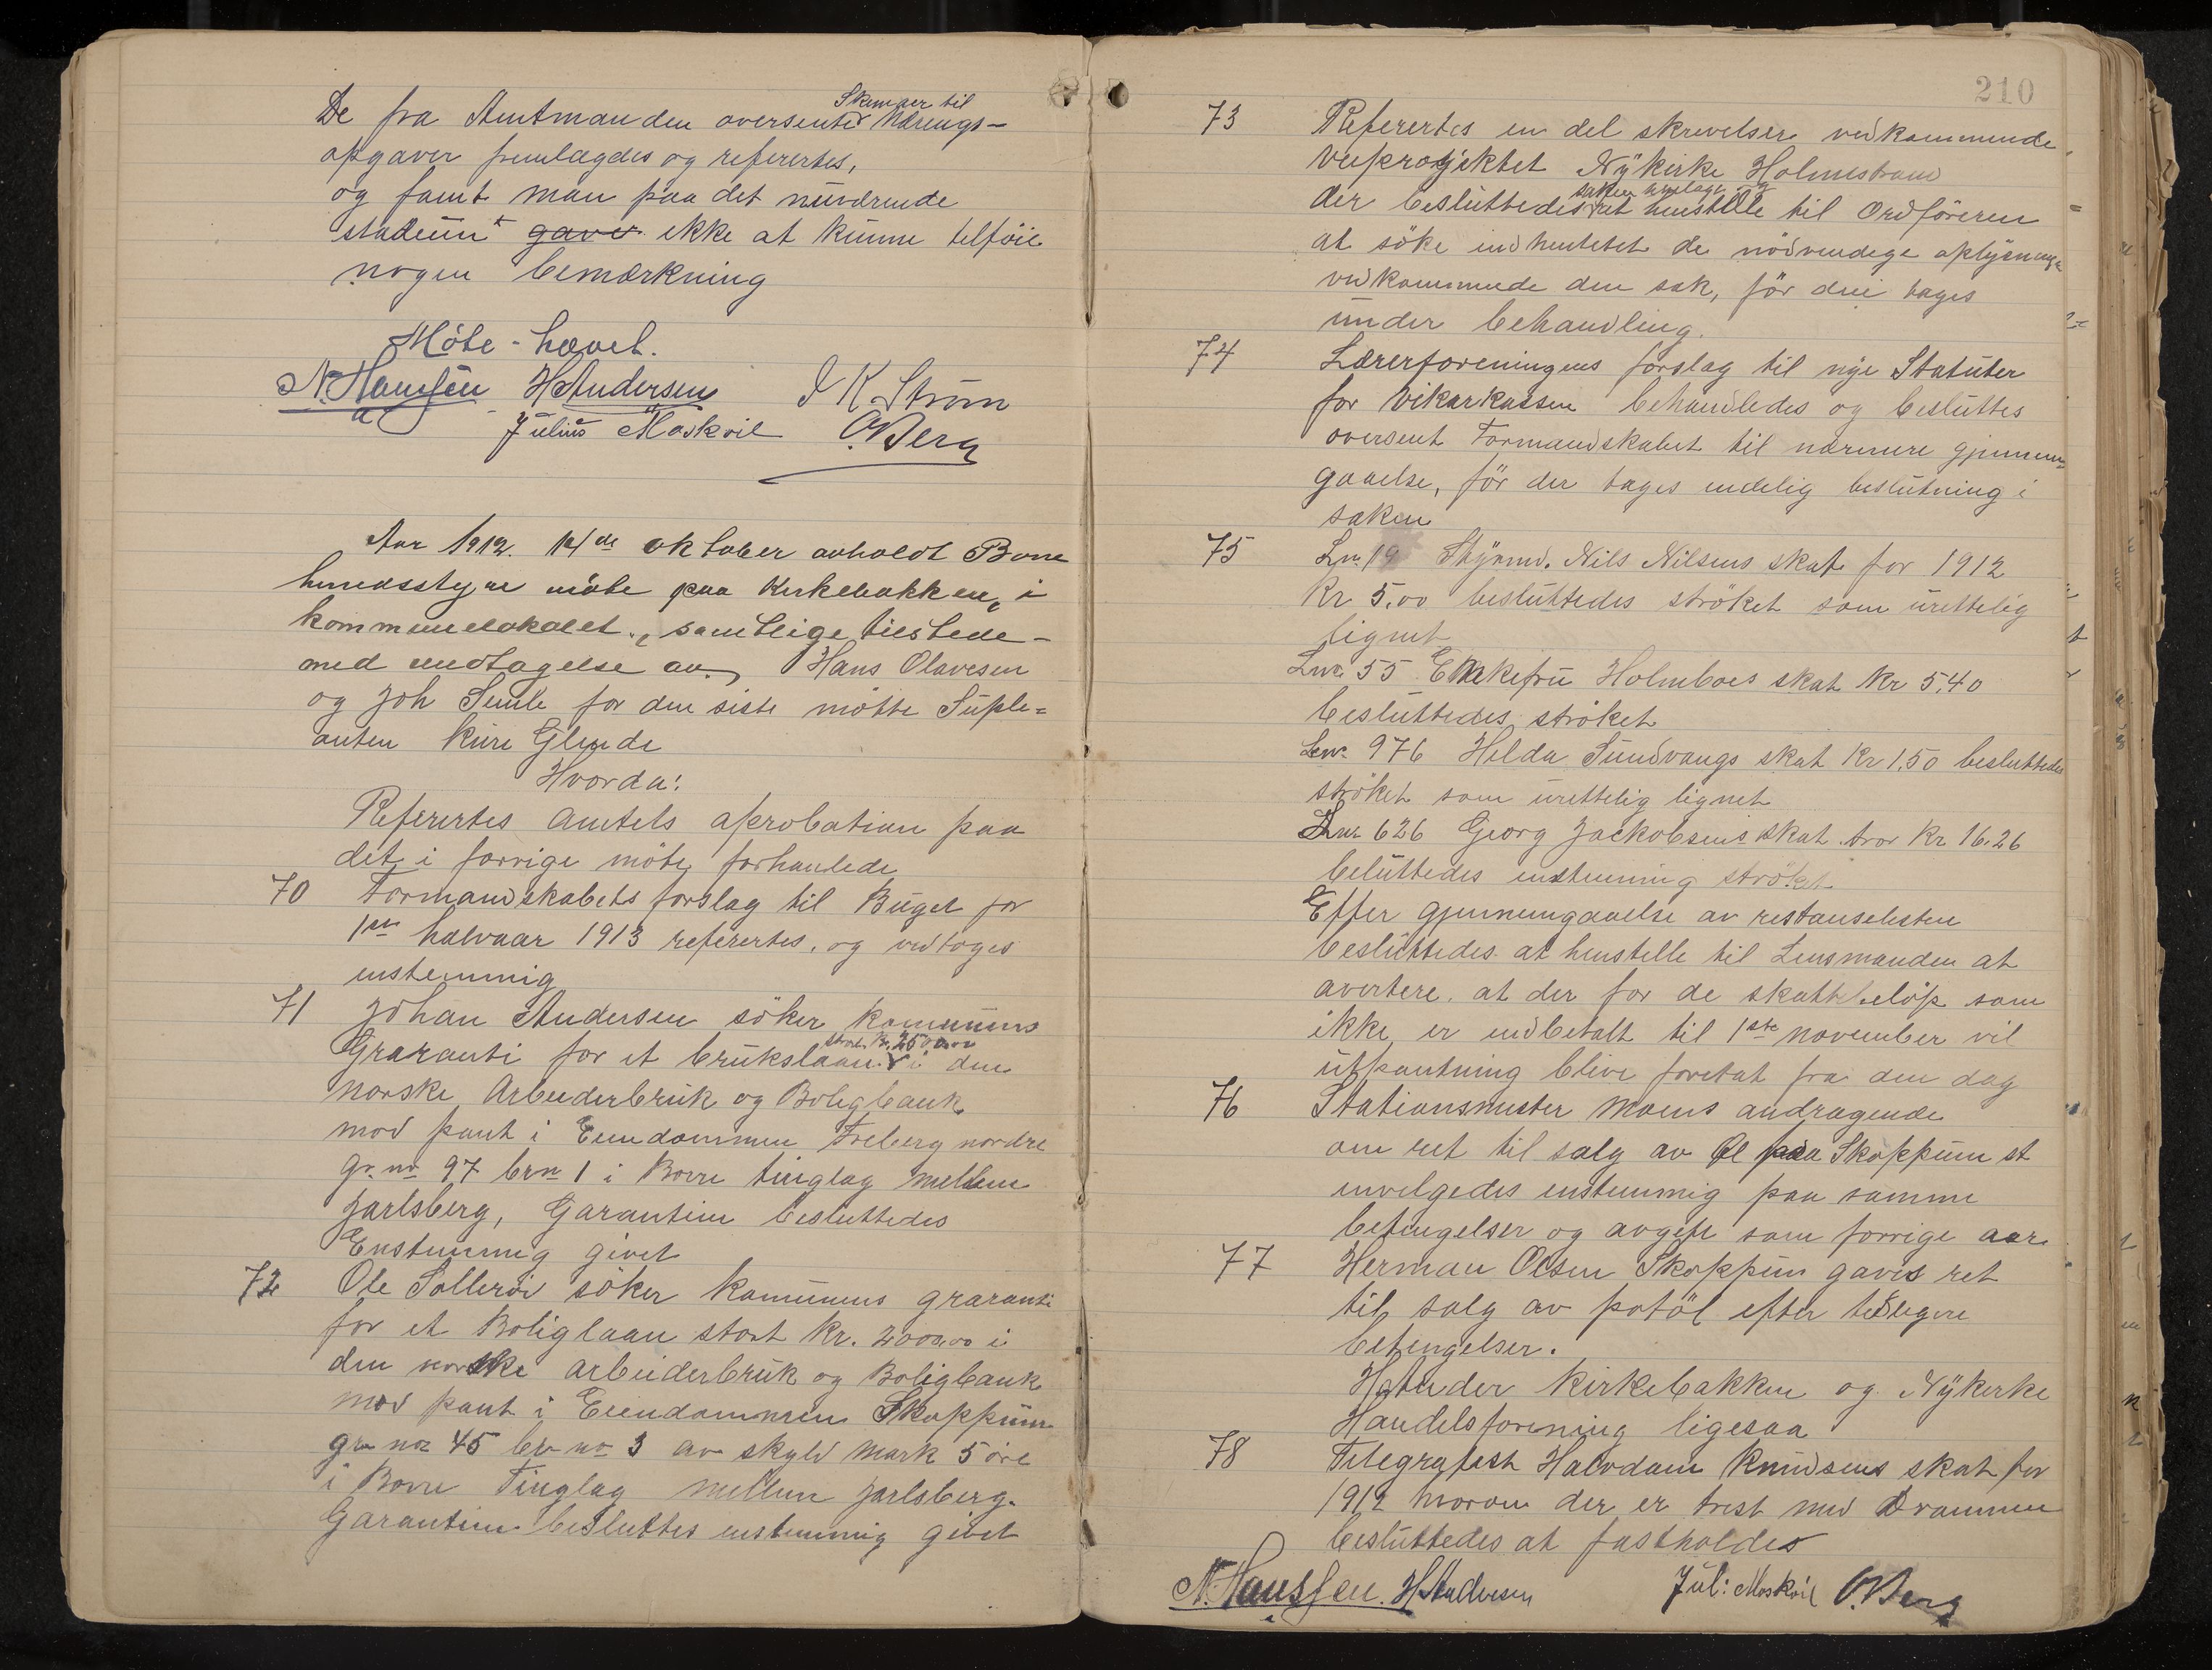 Skemaer til
De fra Amtmanden oversente Nærings-
opgaver fremlagdes og refertes,
og fant man paa det nuværende
stadium gave ikke at kunne tilföie
nogen bemærkning
Möte - hævet.
N. Hanssen HAndersen I K. Strøm
Julius Moskvil O. Berg
Aar 1912. 14de oktober avholdt Borre
herredsstyre möte paa Kirkebakken, i
kommunelokalet., samtlige tilstede -
med undtagelse av Hans Olavesen
og Joh Semle for den siste mötte Suple=
anten Kure Glende
Hvorda:
Referertes amtets aprobation paa
det i forrige möte forhanlede
70 Formandskabets forslag til Buget for
1ste halvaar 1913 referertes, og vedtoges
enstemmig
71 Johan Andersen söker kommuns
stort Kr. 2500.00
Graranti for et brukslaan i den
norske Arbeiderbruk og Boligbank
mod pant i Eiendommen Freberg nordre
gr. no 97 brn 1 i Borre tinglag mellem
Jarlsberg, Garantien besluttedes
Enstemmig givet
72 Ole Solleröd söker kommunens graranti
for et Boliglaan stort Kr. 2000,00 i
den norske arbeiderbruk og Boligbank
mod pant i Eiendommen Skoppum
gr no 45 br no 3 av skyld mark 5 öre
i Borre Tinglag mellem Jarlsberg.
Garantien besluttes enstemmig givet
210
73 Referertes en del skrivelser vedkommende
Veiprosjektet Nÿkirke Holmestrand
saken utsat og
der besluttedes at henstille til Ordföreren
at söke indhentet de nödvendige oplÿsninge
vedkommende den sak, för den tages
under behandling.
74 Lærerforeningens forslag til nye Statuter
for Vikarkassen behandledes og besluttes
oversent Formandskabet til nærmere gjennem=
gaaelse, för der tages endelig beslutning i
saken
75 Lnr. 19 Stÿrmd. Nils Nilsens skat for 1912
Kr 5.00 besluttedes ströket som urettelig
lignet
Lnr. 55 Enkefru Holmboes skat Kr 5,40
besluttedes ströket
Lnr. 976 Hilda Sundvangs skat Kr 1.50 besluttedes
ströket som urettelig lignet
Lnr 626 Georg Jackobsens skat Kr 16.26
beluttedes enstemmig ströket
Efter gjennemgaaelse av restanselisten
besluttedes at henstille til Lensmanden at
avertere at der for de skattebelöp som
ikke er indbetalt til 1ste november vil
utpantning blive foretat fra den dag
76 Stationsmester Moens andragende
om ret til salg av Öl paa Skoppum st
invilgedes enstemmig paa samme
betingelser og avgift som forrige aar.
77 Herman Olsen Skoppum gaves ret
til salg av potöl efter tidligere
betingelser.
Handel Kirkebakken og Nÿkirke
Handelsforening ligesaa
78 Telegrafist Halvdam Knudsens skat for
1912 hvorom der er trist med Drammen
besluttedes at fastholdes
N. Hanssen. HAndersen Jul: Moskvil O. Berg